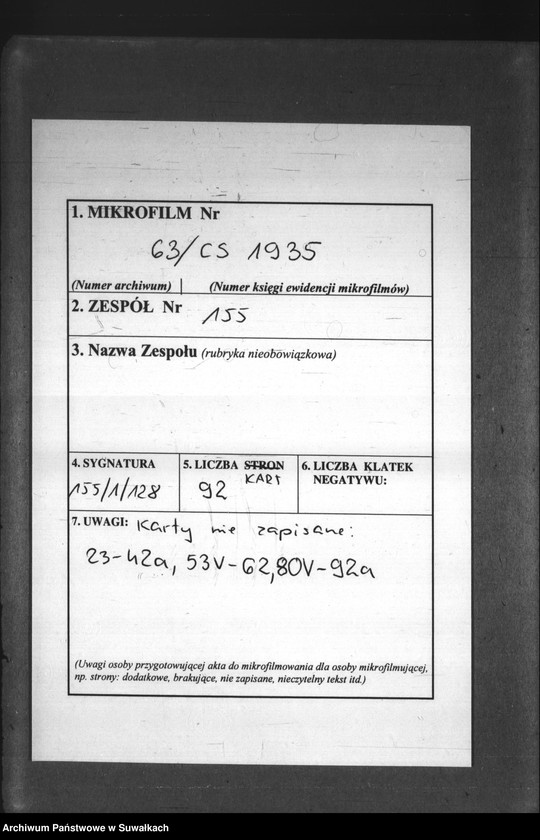 1. MIKROFILM Nr
63/CS 1935
(Numer archiwum) (Numer księgi ewidencji mikrofilmów)
2. ZESPÓŁ Nr
155
3. Nazwa Zespołu (rubryka nieobowiązkowa)
4. SYGNATURA
155/1/128
5. LICZBA STRON
KART
92
6. LICZBA KLATEK
NEGATYWU:
7. UWAGI: Karty nie zapisane:
23-42a, 53V-62, 80V-92a
(Uwagi osoby przygotowującej akta do mikrofilmowania dla osoby mikrofilmującej,
np. strony: dodatkowe, brakujące, nie zapisane, nieczytelny tekst itd.)
Archiwum Państwowe w Suwałkach